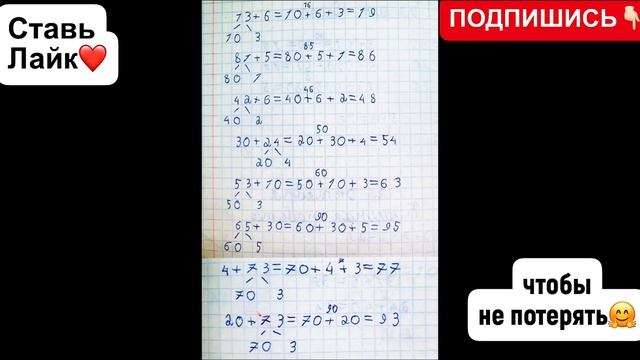 Ставь
Лайк❤
ПОДПИШИСЬ👇
16
13+6=10+6+3=19
10 3
85
81+5=80+5+1=86
80 1
46
42+6=40+6+2=48
40 2
50
30+24=20+30+4=54
20 4
60
53+10=50+10+3=63
50 3
90
65+30=60+30+5=95
60 5
7
4+73=70+4+3=77
70 3
90
20+73=70+20=93
70 3
чтобы
не потерять🤗